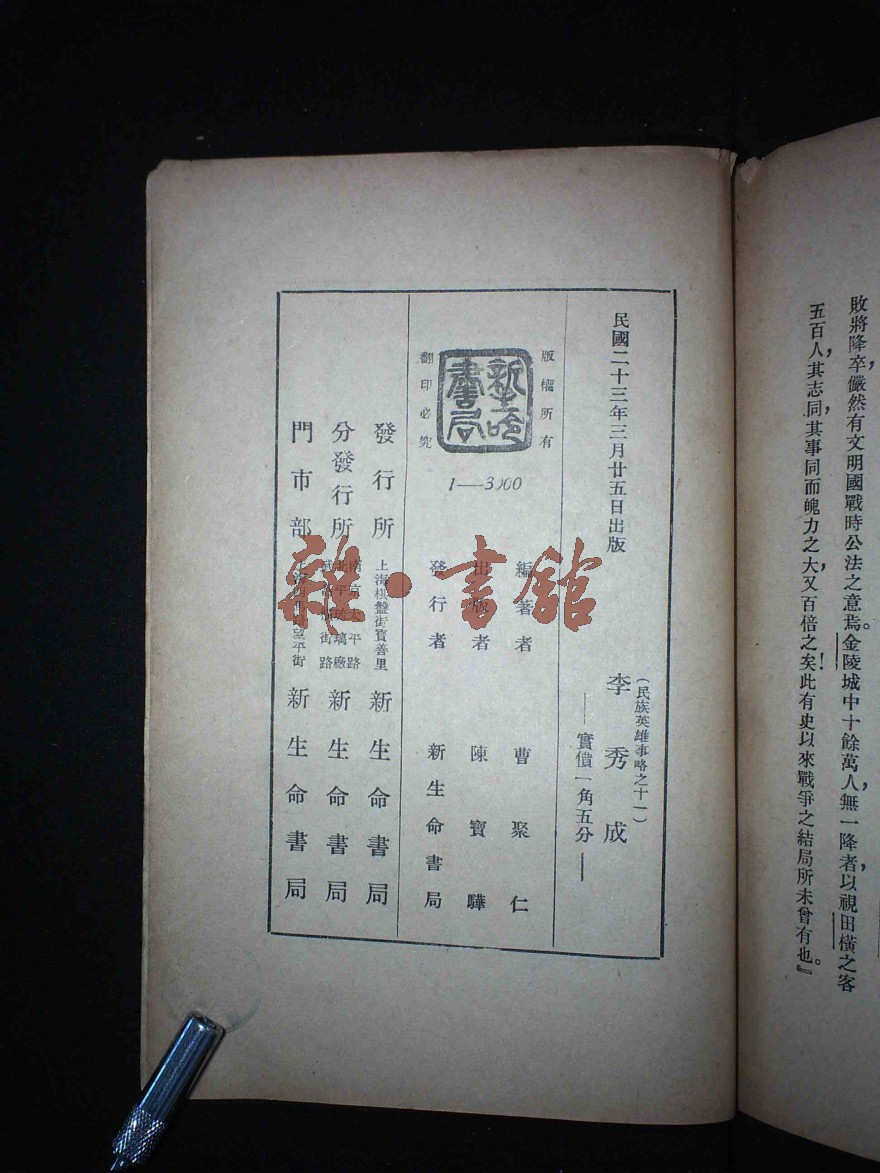 敗將降卒儼然有文明國戰時公法之意焉。金陵城中十餘萬人，無一降者，以視田橫之客
五百人，其志同其事同而魄力之大，又百倍之矣！此有史以來戰爭之結局所未曾有也。』
民國二十三年三月廿五日出版
（民族英雄事略之十一）
李秀成
——實價一角五分——
版權所有
新生命書局
翻印必究
1—3000
編著者 曹聚仁
出版者 陳寶驊
發行者 新生命書局
發行所 上海棋盤街寶善里 新生命書局
分發行所
南京太平路
北平琉璃廠
新生命書局
門市部 望平街 新生命書局
雜·書館